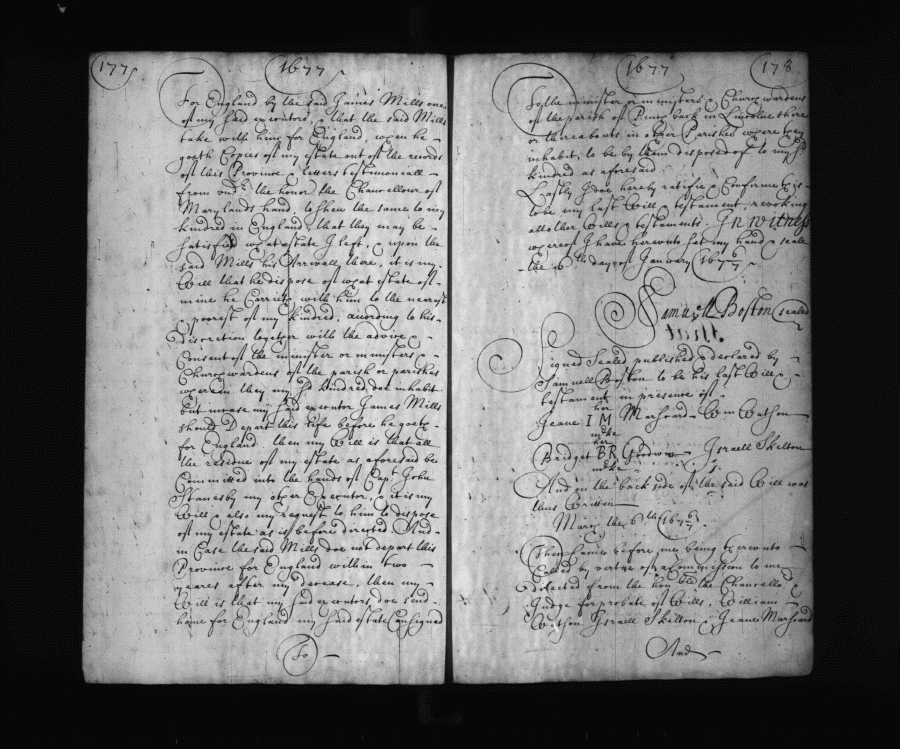 177
1677
For England by the said James Mills one
of my said executors, & that the said Mills
take with him for England, when he
goeth Copies of my estate out of the records
of this Province & letters testimoniall
from undr the honor the Chancellour of
Marylands hand, to shew the same to my
kindred in England, that they may be
satisfied what estate I left, & upon the
said Mills his Arrivall there, it is my
Will that he dispose of what estate of
mine he Carries with him to the nearest
& poorest of my kindred, according to his
discretion together with the advice &
Consent of the minister or ministers &
Churchwardens of the parish or parishes
wherein they my sd kindred doe inhabit
but incase my said executor James Mills
should Depart this life before he goeth
for England, then my Will is that all
the residue of my estate as aforesaid be
Committed into the hands of Capt John
Stanesby my other Executor, & it is my
Will & also my request to him to dispose
of my estate as is before directed. And
in Case the said Mills doe not depart this
Province for England within two
yeares after my decease, then my
Will is that my said executors doe send
home for England my said estate Consigned
To
1677
178
To the minister or ministers & Churchwardens
of the parish of Pinchback in Lincolneshire
or thereabouts in other Parishes where they
inhabit, to be by them disposed of to my sd
kindred as aforesaid
Lastly I doe hereby ratifie & Conforme this
to be my last Will & testament, revoking
all other Wills & testaments. In Witness
whereof I have hereunto set my hand & seale
the 6th day of January 167 6/7
Samuell Boston sealed
Signed Sealed published & declared by
Samuell Boston to be his last Will &
testament in presence of
her
Jeane I M Marshard Wm Watson
marke
her
Bridget BR Goodwin Israell Skelton
marke
And on the back side of the said Will was
thus Written
March the 6th 167 6/7
Then Came before me being thereunto
Called by vertue of a Commission to me
directed from the honble the Chancellor &
Judge for probate of Wills, William
Watson, Israell Skelton & Jeane Marshard
And